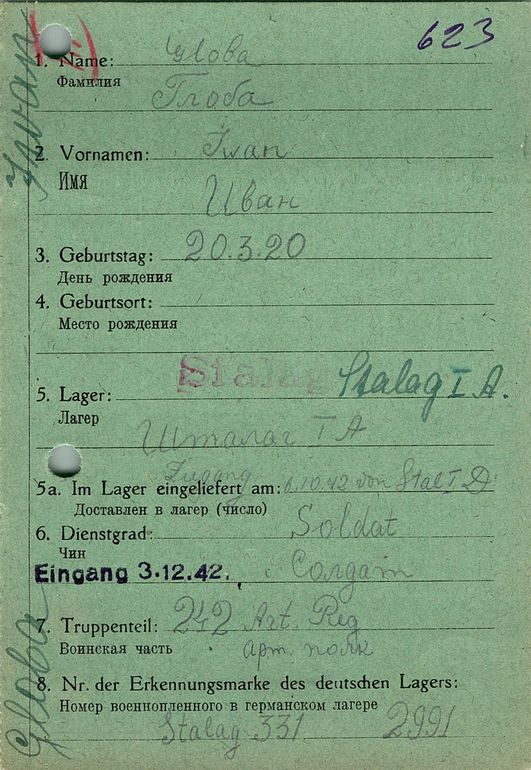 623
1. Name: Globa
Фамилия
Глоба
2. Vornamen: Iwan
ИМЯ
Иван
3. Geburtstag: 20.3.20
День рождения
4. Geburtsort:
Место рождения
Stalag Stalag I A.
5. Lager:
Лагер
Шталаг I A
Zugang
5a. Im Lager eingeliefert am: 6.10.42 von Stal I D
Доставлен в лагер (число)
6. Dienstgrad: Soldat
Чин
Eingang 3.12.42. Солдат
7. Truppenteil: 242 Art. Reg
Воинская часть арт. полк
8. Nr. der Erkennungsmarke des deutschen Lagers:
Номер военнопленного в германском лагере
Stalag 331 2991
Iwan
Globa